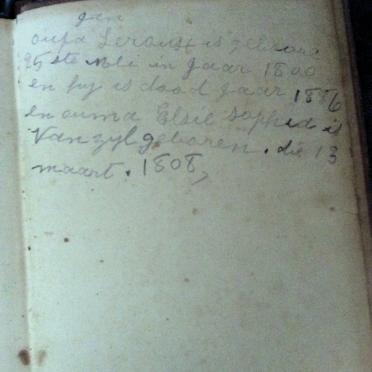 gen
oupa is gebore
25 ste in Jaar 1800
en hy is dood Jaar 1886
en ouma Elsie Sophia is
Van zyl geboren . die 13
maart . 1808,